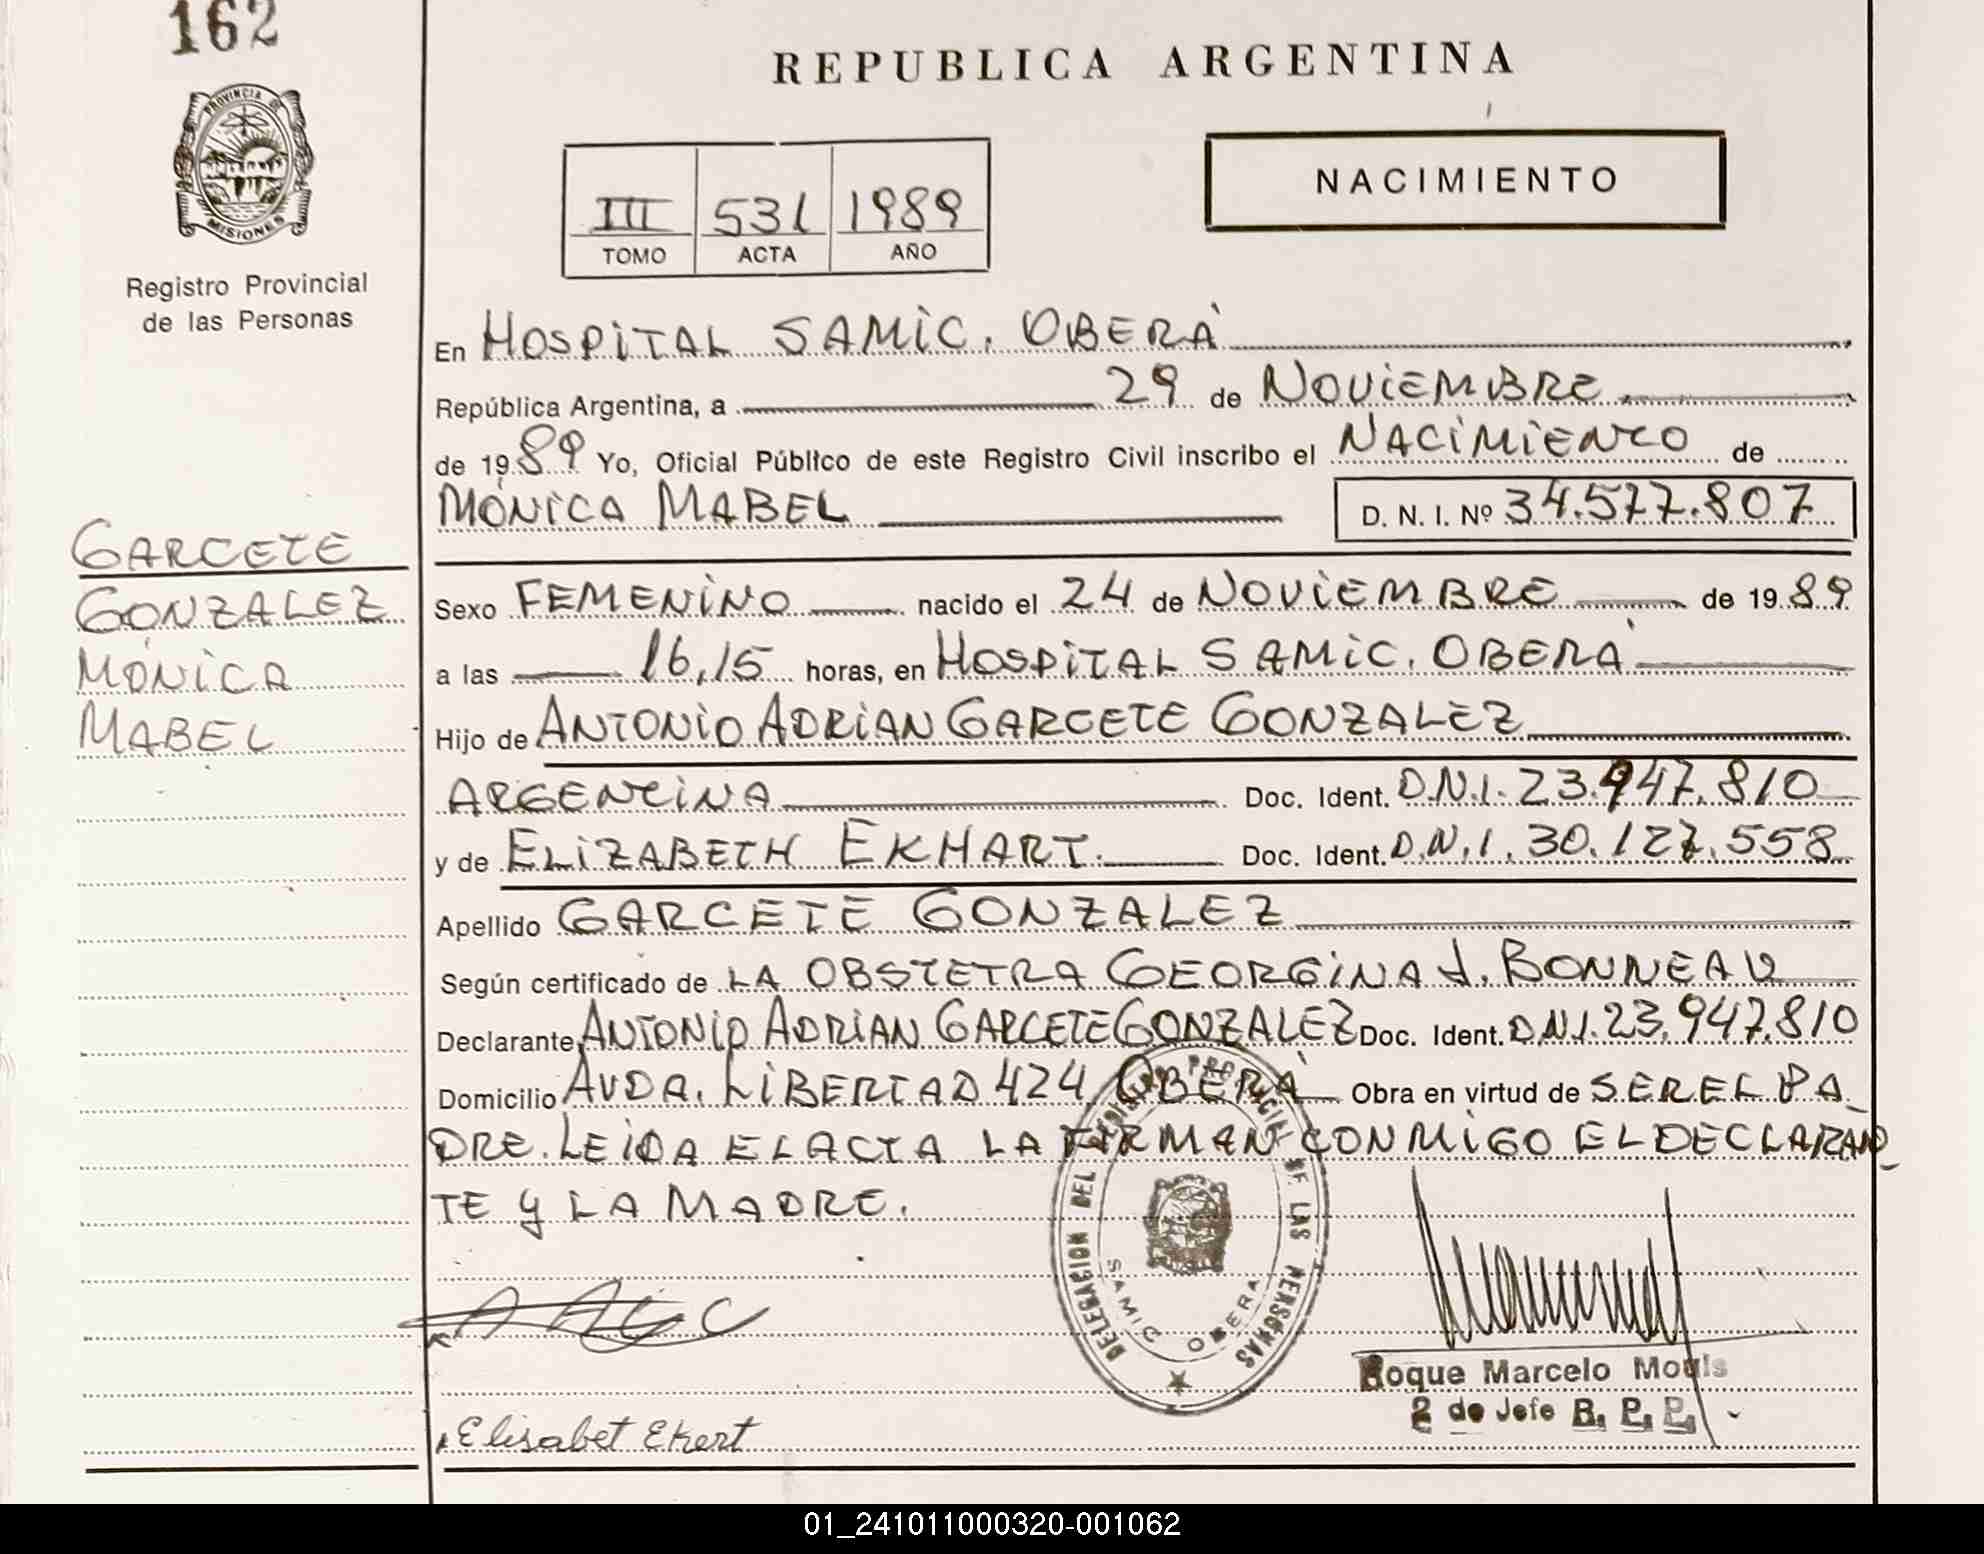 162
PROVINCIA DE
MISIONES
Registro Provincial
de las Personas
GARCETE
GONZALEZ
MÓNICA
MABEL
REPUBLICA ARGENTINA
III 531 1989
TOMO ACTA AÑO
NACIMIENTO
En HOSPITAL SAMIC. OBERÁ
República Argentina, a 29 de NOVIEMBRE
de 1989 Yo, Oficial Público de este Registro Civil inscribo el NACIMIENTO de
MÓNICA MABEL D. N. I. Nº 34.577.807
Sexo FEMENINO nacido el 24 de NOVIEMBRE de 1989
a las 16,15 horas, en HOSPITAL SAMIC. OBERÁ
Hijo de ANTONIO ADRIAN GARCETE GONZALEZ
ARGENTINA Doc. Ident. D.N.I. 23.947.810
y de ELIZABETH EKHART. Doc. Ident. D.N.I. 30.127.558
Apellido GARCETE GONZALEZ
Según certificado de LA OBSTETRA GEORGINA J. BONNEAU
Declarante ANTONIO ADRIAN GARCETE GONZALEZ Doc. Ident. D.N.I. 23.947.810
Domicilio AVDA. LIBERTAD 424 OBERÁ Obra en virtud de SER EL PA_
DRE. LEIDA EL ACTA LA FIRMAN CONMIGO EL DECLARAN_
TE Y LA MADRE.
DELEGACION DEL REGISTRO PROVINCIAL DE LAS PERSONAS
SAMIC OBERA
Roque Marcelo Mouls
2 do Jefe R. P. P.
Elisabet Ekert
01_241011000320-001062